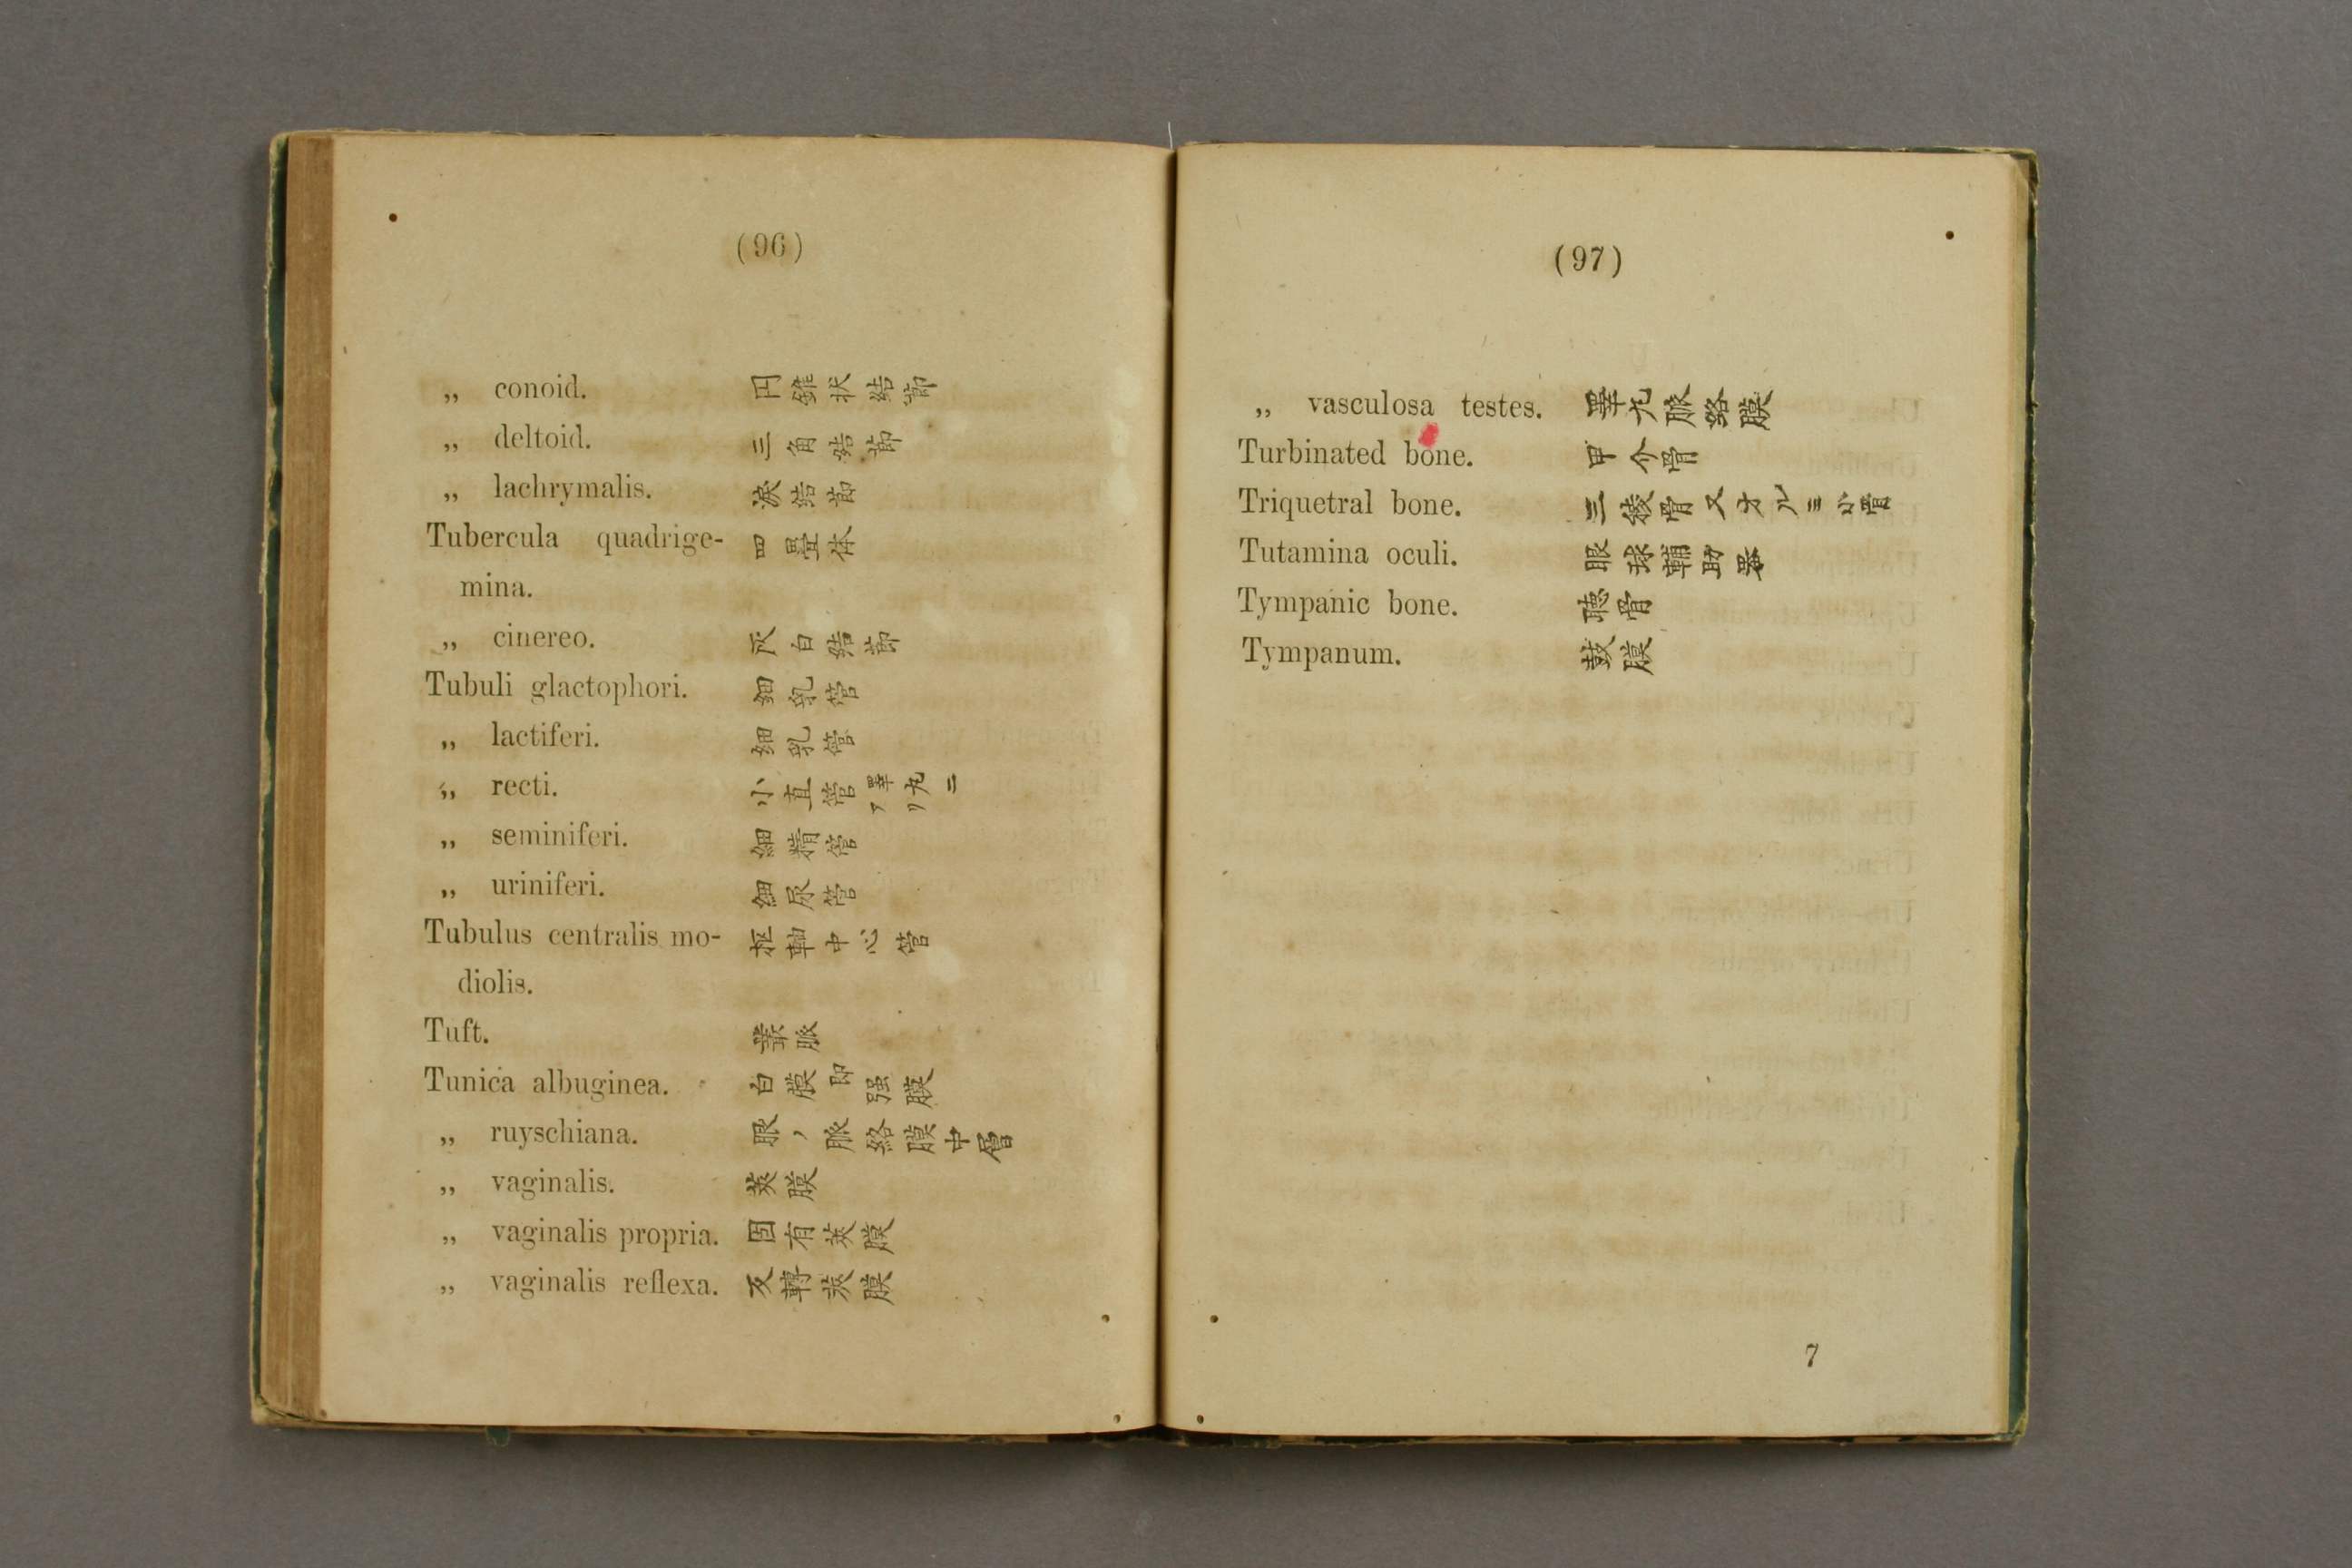 (96)
„ conoid. 円錐状結節
„ deltoid. 三角結節
„ lachrymalis. 涙結節
Tubercula quadrige- 四畳体
mina.
„ cinereo. 灰白結節
Tubuli glactophori. 細乳管
„ lactiferi. 細乳管
„ recti. 小直管睾丸ニアリ
„ seminiferi. 細精管
„ uriniferi. 細尿管
Tubulus centralis mo- 枢軸中心管
diolis.
Tuft. 叢脈
Tunica albuginea. 白膜即强膜
„ ruyschiana. 眼ノ脈絡膜中層
„ vaginalis. 莢膜
„ vaginalis propria. 固有莢膜
„ vaginalis reflexa. 反轉莢膜
(97)
„ vasculosa testes. 睾丸脈絡膜
Turbinated bone. 甲介骨
Triquetral bone. 三稜骨又
Tutamina oculi. 眼球輔助器
Tympanic bone. 聴骨
Tympanum. 鼓膜
7